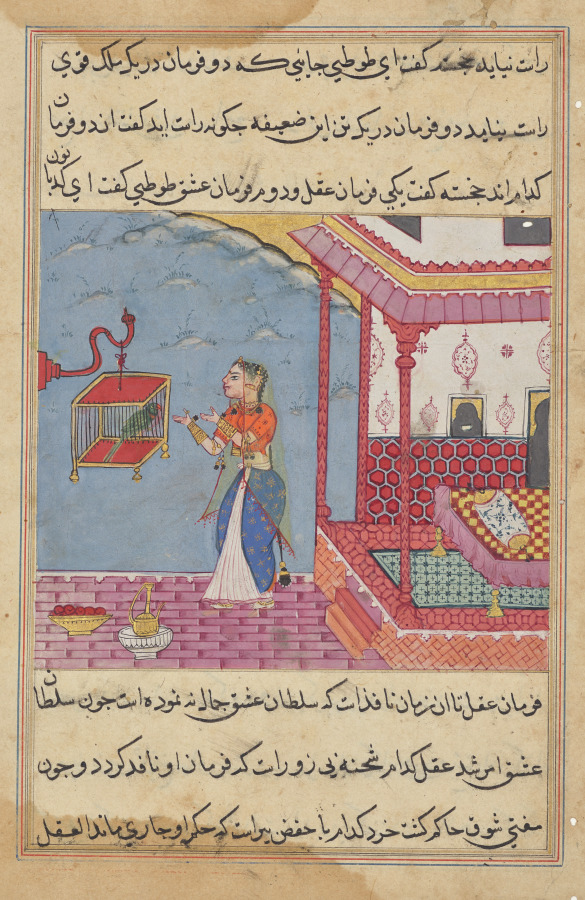 راست نیاید خجسته گفت ای طوطی جایئی که دو فرمان در یک ملک قوی
راست نیاید دو فرمان در یک تن این ضعیفه چگونه راست اید گفت ان دو فرمان
کدام اند خجسته گفت یکی فرمان عقل و دوم فرمان عشق طوطی گفت ای کدبانو
فرمان عقل تا ان زمان نافذ است که سلطان عشق جمال نه نموده است چون سلطان
عشق امر شد عقل کدام شحنه بی زور است که فرمان او نافذ کردد و چون
مفتی شوق حاکم کشت خرد کدام با حفص پیر است که حکم او جاری ماند العقل